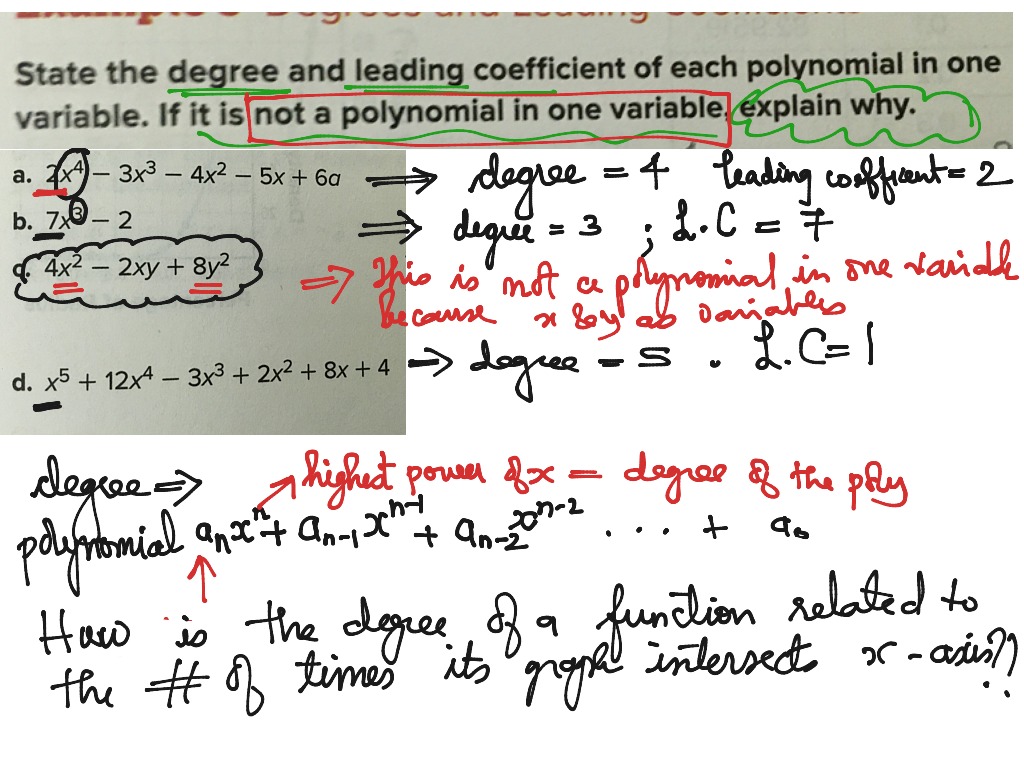 State the degree and leading coefficient of each polynomial in one
variable. If it is not a polynomial in one variable, explain why.
a. 2x⁴ − 3x³ − 4x² − 5x + 6a ⟹ degree = 4 leading coefficient = 2
b. 7x³ − 2 ⟹ degree = 3 ; L.C = 7
c. 4x² − 2xy + 8y² ⟹ This is not a polynomial in one variable
because x & y as variables
d. x⁵ + 12x⁴ − 3x³ + 2x² + 8x + 4 ⟹ degree = 5 . L.C = 1
degree ⟹ highest power of x = degree of the poly
polynomial aₙxⁿ + aₙ₋₁xⁿ⁻¹ + aₙ₋₂xⁿ⁻² . . . + a₀
How is the degree of a function related to
the # of times its graph intersects x-axis??